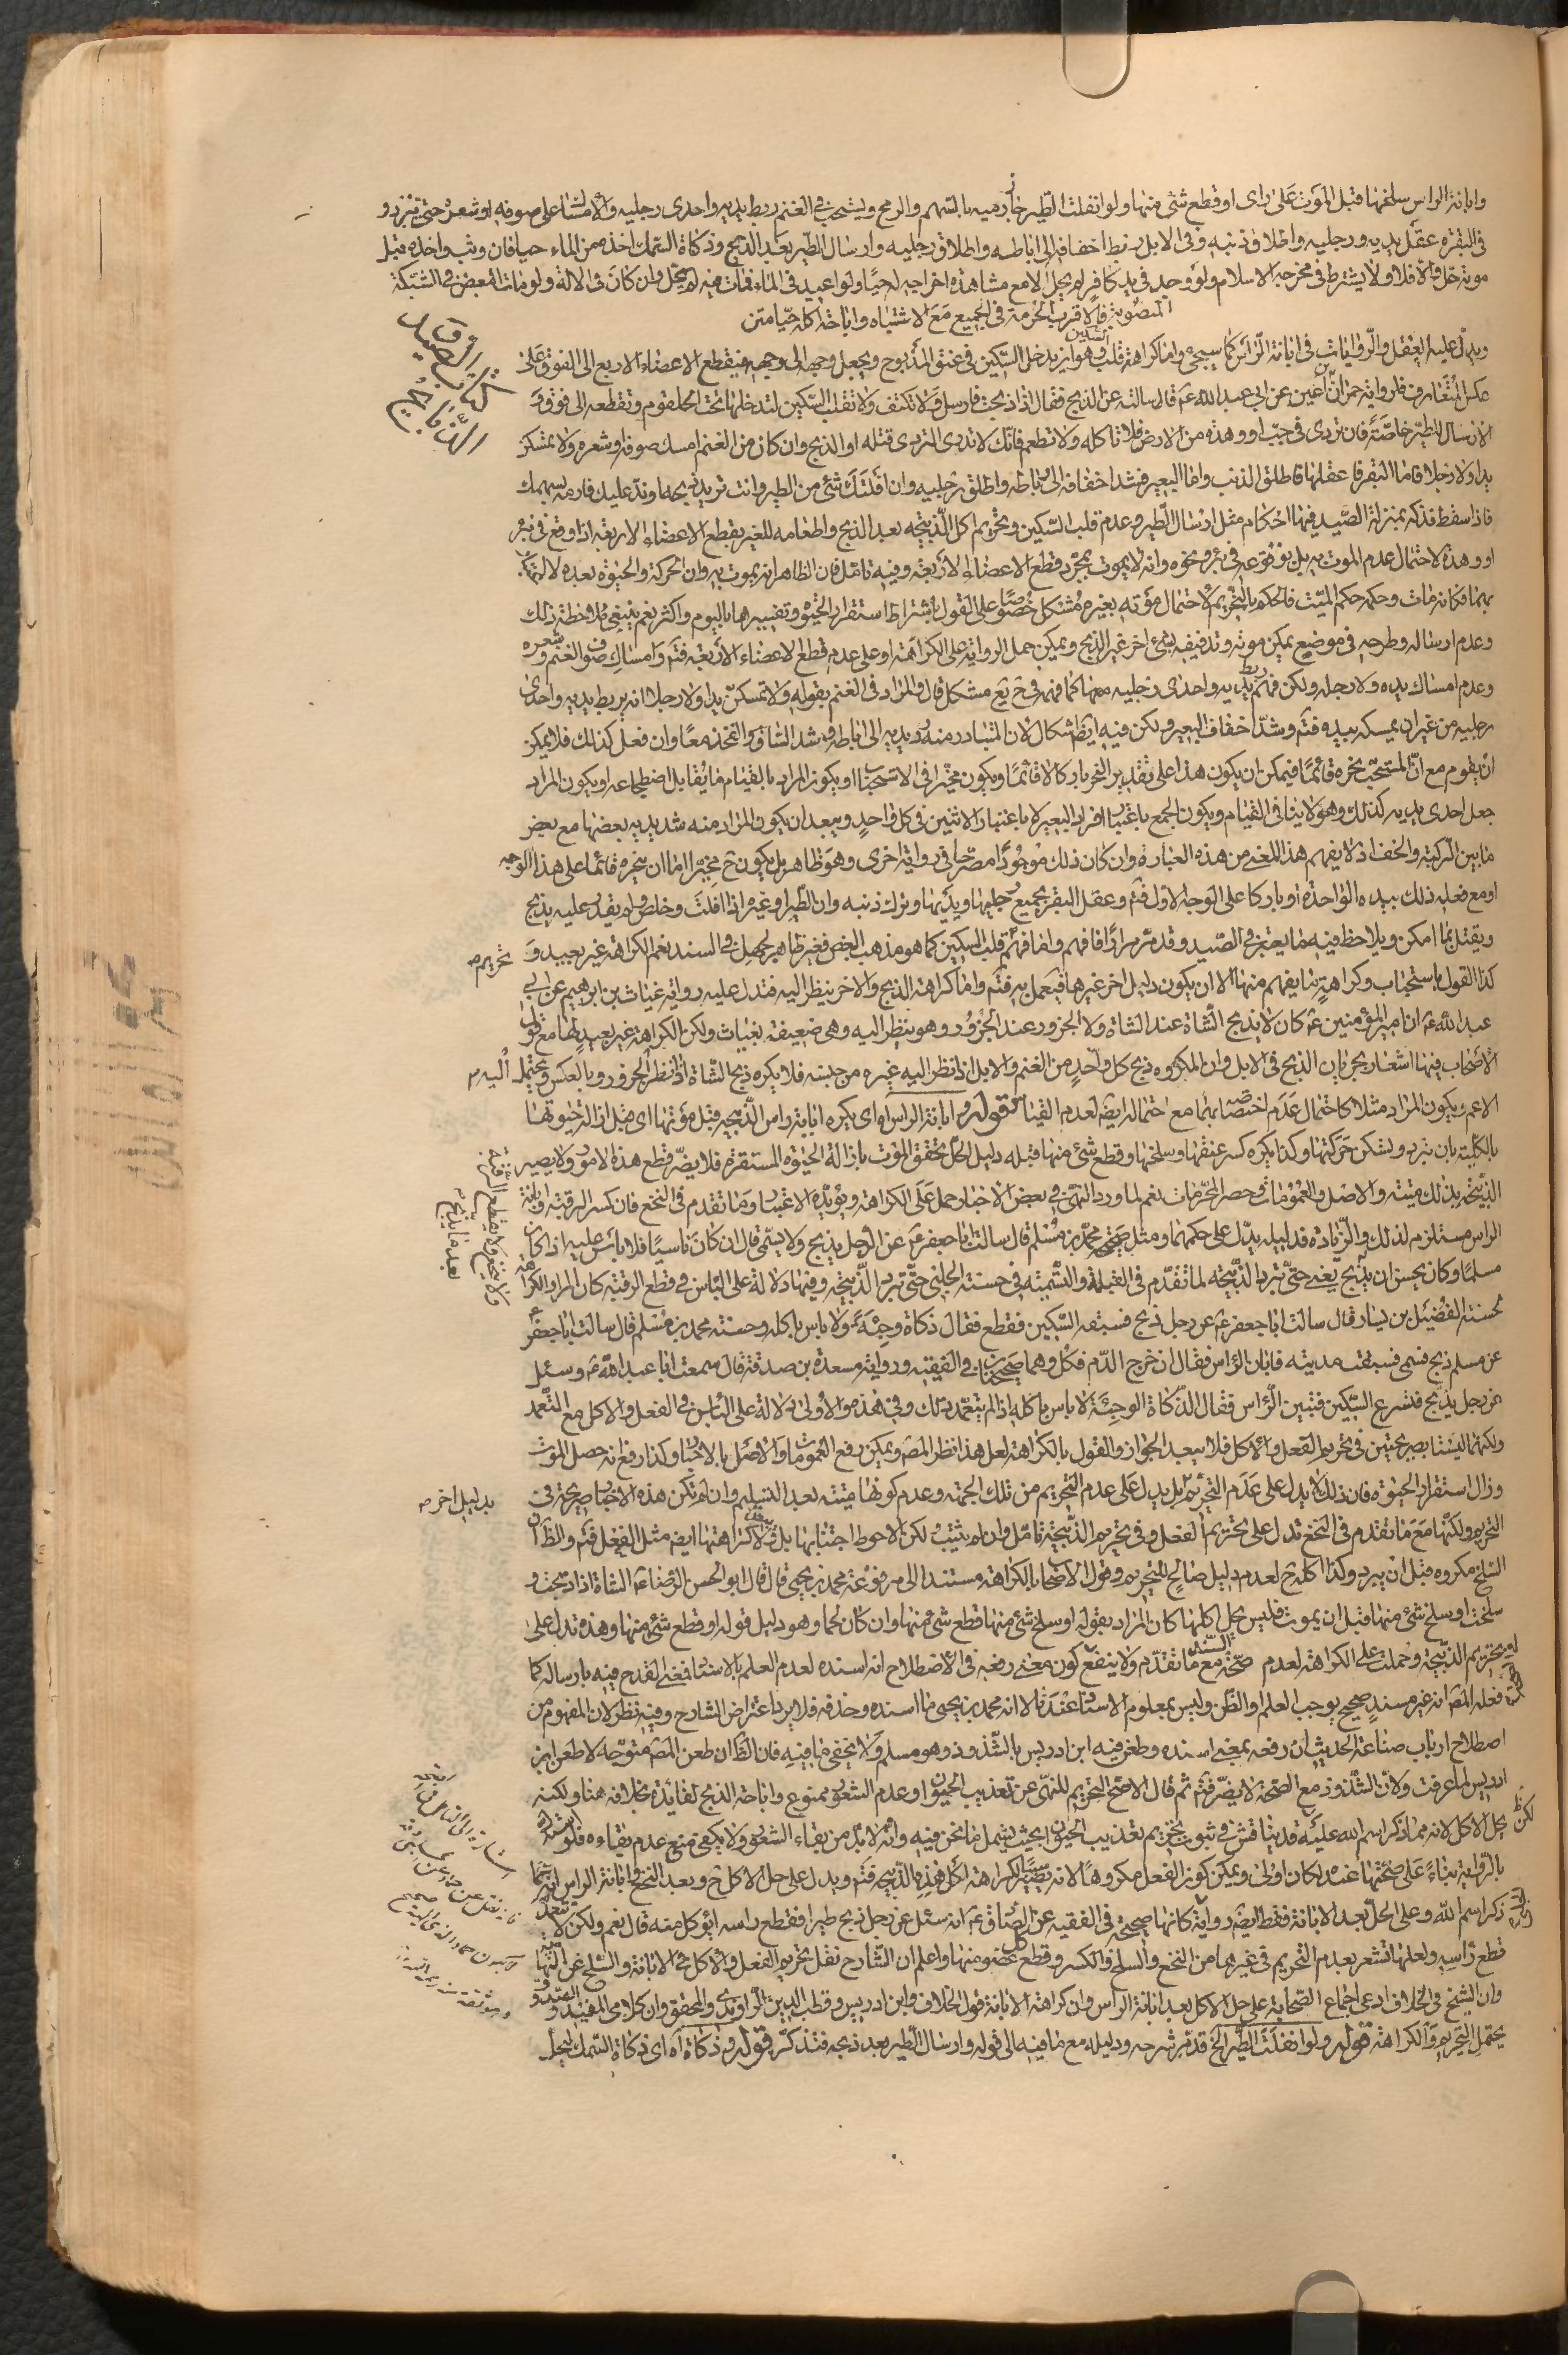 وابانة الراس سلخها قبل الموت على راى او قطع شئ منها ولو انفلت الطير جاز رميه بالسهم والرمح ويستحب في الغنم ربط يديه واحدى رجليه والامساك على صوفه او شعره حتى تبرد و
في البقر عقل يديه ورجليه واطلاق ذنبه وفى الابل ربط اخفافه الى اباطه واطلاق رجليه وارسال الطير بعد الذبح وذكاة السمك اخذه من الماء حيا فان وثب واخذه قبل
موته حل والا فلا ولا يشترط في مخرجه الاسلام ولو وجد في يد كافر لم يحل الا مع مشاهدة اخراجه له حيا ولو اعيد في الماء فمات فيه لم يحل وان كان في الالة ولو مات البعض في الشبكة
المنصوبة فالاقرب الحرمة في الجميع مع الاشتباه واباحة اكله حيا متن
كتاب الصيد
الذبايح
ويدل عليه العقل والروايات في ابانة الراس كما سيجئ واما كراهة قلب السكين وهو ان يدخل السكين في عنق المذبوح ويجعل وجهه الى فيقطع الاعضاء الاربع الى الفوق على
عكس المتعارف فلرواية حمران بن اعين عن ابى عبد الله ع قال سالته عن الذبح فقال اذا ذبحت فارسل ولا تكتف ولا تقلب السكين لتدخلها تحت الحلقوم وتقطعه الى فوق و
الارسال للطير خاصة فان تردى في جب او وهدة من الارض فلا تاكله ولا تطعم فانك لا تدرى التردى قتله او الذبح وان كان من الغنم امسك صوفه او شعره ولا تمسكن
يدا ولا رجلا فاما البقر فاعقلها واطلق الذنب واما البعير فشد اخفافه الى اباطه واطلق رجليه وان افلتك شئ من الطير وانت تريد ذبحه او ند عليك فارمه بسهمك
فاذا سقط فذكه بمنزلة الصيد فيها احكام مثل ارسال الطير وعدم قلب السكين وتحريم اكل الذبيحة بعد الذبح واطعامه للغير بقطع الاعضاء الاربعة اذا وقع في بئر
او وهدة لاحتمال عدم الموت به بل بوقوعه في بئر ونحوه وانه لا يموت بمجرد قطع الاعضاء الاربعة وفيه تامل فان الظاهر انه يموت به وان الحركة والحيوة بعده لا
بهما فكانه مات وحكمه حكم الميت فالحكم بالتحريم لاحتمال موته بغيره مشكل خصوصا على القول باشتراط استقرار الحيوة وتفسيرها باليوم واكثر نعم ينبغى ملاحظة ذلك
وعدم ارساله وطرحه في موضع يمكن موته وتدفيفه بشئ اخر غير الذبح ويمكن حمل الرواية على الكراهة او على عدم قطع الاعضاء الاربعة فتم وامساك صوف الغنم وشعره
وعدم امساك يده ولا رجله ولكن فهم ربط يديه واحدى رجليه منها كما فهم في ئع مشكل قال والمراد في الغنم بقوله ولا تمسكن يدا ولا رجلا انه يربط يديه واحدى
رجليه من غير ان يمسكه بيده فتم وشد اخفاف البعير ولكن فيه ايضا اشكال لان المتبادر منه يديه الى اباطه شد الساق والفخذ معا وان فعل كذلك فلا يمكن
ان يقوم مع ان المستحب نحره قائما فيمكن ان يكون هذا على تقدير النحر باركا لا قائما ويكون مخيرا في الاستحباب او يكون المراد بالقيام ما يقابل اضطجاعه او يكون المراد
جعل احدى يديه كذلك وهو لا ينافى القيام ويكون الجمع باعتبار افراد البعير لا باعتبار الاثنين في كل واحد ويبعد ان يكون المراد منه شد يديه بعضها مع بعض
ما بين الركبة والخف اذ لا يفهم هذا المعنى من هذه العبارة وان كان ذلك موجودا مصرحا في رواية اخرى وهو ظاهر بل يكون ح مخيرا اما ان ينحره قائما على هذا الوجه
او مع فعله ذلك بيده الواحدة او باركا على الوجه الاول فتم وعقل البقر بجميع رجليها ويديها وترك ذنبه وان الطير او غيره اذا افلت وخلص ولم يقدر عليه يذبح
ويقتل بما امكن ويلاحظ فيه ما يعتبر في الصيد وقد مر مرارا فافهم واما فهم قلب السكين كما هو مذهب البعض فغير ظاهر لجهل في السند نعم الكراهة غير بعيد و تحريم
كذا القول باستحباب وكراهة ما يفهم منها الا ان يكون دليل اخر غيرها فيعمل به فتم واما كراهة الذبح والاخر ينظر اليه فتدل عليه رواية غياث بن ابراهيم عن ابى
عبد الله ع ان امير المؤمنين ع كان لا يذبح الشاة عند الشاة ولا الجزور عند الجزور وهو ينظر اليه وهى ضعيفة بغياث ولكن الكراهة غير بعيد لها مع قول
الاصحاب فيها اشعار بجريان الذبح في الابل وان المكروه ذبح كل واحد من الغنم والابل اذا نظر اليه غيره من جنسه فلا يكره ذبح الشاة اذا نظر الجزور وبالعكس ويحتمل اليه
الاعم بكون المراد مثلا كاحتمال عدم اختصاص بهما مع احتماله ايضا لعدم القياس قوله وابانة الراس اه اى يكره ابانة راس الذبيحة قبل موتها اى قبل ازالة حيوتها
بالكلية بان تبرد ويسكن حركتها وكذا يكره كسر عنقها وسلخها وقطع شئ منها قبله دليل الحل تحقق الموت بازالة الحيوة المستقرة فلا يضر قطع هذه الامور ولا يصير
الذبيحة بذلك ميتة والاصل والعمومات وحصر المحرمات نعم لما ورد النهى في بعض الاخبار حمل على الكراهة ويؤيده الاعتبار وما تقدم في النخع فان كسر الرقبة وابانة
الراس مستلزم لذلك والزيادة فدليله يدل على حكمهما ومثل صحيحة محمد بن مسلم قال سالت ابا جعفر ع عن الرجل يذبح ولا يسمى قال ان كان ناسيا فلا باس عليه اذا كان
مسلما وكان يحسن ان يذبح يعنى حتى تبرد الذبيحة لما تقدم في القبلة والتسمية في حسنة الحلبى حتى تبرد الذبيحة وفيها دلالة على الباس في قطع الرقبة كان المراد الكراهة
لحسنة الفضيل بن يسار قال سالت ابا جعفر ع عن رجل ذبح فسبقه السكين فقطع فقال ذكاة وحية ولا باس باكله وحسنة محمد بن مسلم قال سالت ابا جعفر
عن مسلم ذبح فسمى فسبقت مديته فابان الراس فقال ان خرج الدم فكل وهما صحيحتان في الفقيه ورواية مسعدة بن صدقة قال سمعت ابا عبد الله ع وسئل
عن رجل يذبح فتسرع السكين فتبين الراس فقال الذكاة الوحية لا باس باكله اذا لم يتعمد بذلك وفي هذه والاولى دلالة على الباس في الفعل والاكل مع التعمد
ولكنها ليستا بصريحتين في تحريم الفعل والاكل فلا يبعد الجواز والقول بالكراهة لعل هذا نظر المصر ويمكن رفع العمومات والاصل بالاخبار وكذا رفع انه حصل الموت
وزال استقرار الحيوة فان ذلك لا يدل على عدم التحريم بل يدل على عدم التحريم من تلك الجهة وعدم كونها ميتة بعد التسليم وان لم تكن هذه الاخبار صريحة في بدليل اخر
التحريم ولكنها مع ما تقدم في النخع تدل على تحريم الفعل وفي تحريم الذبيحة تامل وان لم يثبت لكن الاحوط اجتنابها بل لا كراهتها ايض مثل الفعل فتم والظ ان
السلخ مكروه قبل ان يبرد وكذا اكله ح لعدم دليل صالح للتحريم وقول الاصحاب بالكراهة مستندا الى مرفوعة محمد بن يحيى قال قال ابو الحسن الرضا ع الشاة اذا ذبحت و
سلخت او سلخ شئ منها قبل ان يموت فليس يحل اكلها كان المراد بقوله او سلخ شئ منها قطع شئ منها وان كان لحما وهو دليل قوله او قطع شئ منها وهذه تدل على
تحريم الذبيحة وحملت على الكراهة لعدم صحة السند مع ما تقدم ولا ينفع كون معنى رفعه في الاصطلاح انه اسنده لعدم العلم بالاسناد فمعنى القدح فيه بارساله كما
فعله المصر انه غير مسند صحيح يوجب العلم والظن وليس بمعلوم الاسناد عندنا لا انه محمد بن يحيى ما اسنده وحذفه فلا يرد اعتراض الشارح وفيه نظر لان المفهوم من
اصطلاح ارباب صناعة الحديث ان رفعه بمعنى اسنده وطعن فيه ابن ادريس بالشذوذ وهو مسلم ولا يخفى ما فيه فان الظ ان طعن المصر متوجه لا طعن ابن
ادريس لما عرفت ولان الشذوذ مع الصحة لا يضر فتم ثم قال الاصح التحريم للنهى عن تعذيب الحيوان او عدم الشعور ممنوع واباحة الذبح لفائدة بخلافه هنا ولكنه
يحل الاكل لانه مما ذكر اسم الله عليه قد يناقش في ثبوت تحريم تعذيب الحيوان بحيث يشمل ما نحن فيه وانه لا بد من بقاء الشعور ولا يكفى منع عدم بقاءه فلو استدل
بالرواية بناء على صحتها عنده لكان اولى ويمكن كون الفعل مكروها لانه يصير سببا لكراهة اكل هذه الذبيحة فتم ويدل على حل الاكل ح وبعد النخع وابانة الراس انه مما
ذكر اسم الله وعلى الحل بعد الابانة فقط ايضا رواية كانها صحيحة في الفقيه عن الصادق ع انه سئل عن رجل ذبح طيرا فقطع راسه ايؤكل منه قال نعم ولكن لا يتعمد
قطع راسه ولعلها تشعر بعدم التحريم في غيرها من النخع والسلخ والكسر وقطع كل عضو منها واعلم ان الشارح نقل تحريم الفعل والاكل في الابانة والسلخ عن النهاية
وان الشيخ في الخلاف ادعى اجماع الصحابة على حل الاكل بعد ابانة الراس وان كراهة الابانة قول الخلاف وابن ادريس وقطب الدين الراوندى والمحقق وان كلامى المفيد و الصدوق
يحتمل التحريم والكراهة قوله ولو انفلت الطير الخ قد مر شرحه ودليله مع ما فيه الى قوله وارسال الطير بعد ذبحه فتذكر قوله وذكاة اه اى ذكاة السمك ليحل